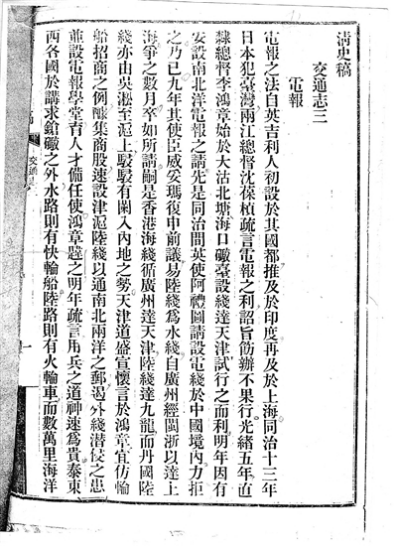 清史稿
交通志三
電報
電報之法自英吉利人初設於其國都推及於印度再及於上海同治十三年
日本犯臺灣兩江總督沈葆楨疏言電報之利詔旨飭辦不果行光緒五年直
隸總督李鴻章始於大沽北塘海口礮臺設綫達天津試行之而利明年因有
安設南北洋電報之請先是同治間英使阿禮國請設電綫於中國境內力拒
之乃已九年其使臣威妥瑪復申前議易陸綫為水綫自廣州經閩浙以達上
海爭之數月卒如所請嗣是香港海綫循廣州達天津陸綫達九龍而丹國陸
綫亦由吳淞至滬上駸駸有闌入內地之勢天津道盛宣懷言於鴻章宜仿輪
船招商之例醵集商股速設津滬陸綫以通南北兩洋之郵遏外綫潛侵之患
並設電報學堂育人才備任使鴻章韙之明年疏言用兵之道神速為貴泰東
西各國於講求鎗礮之外水路則有快輪船陸路則有火輪車而數萬里海洋
交通
一